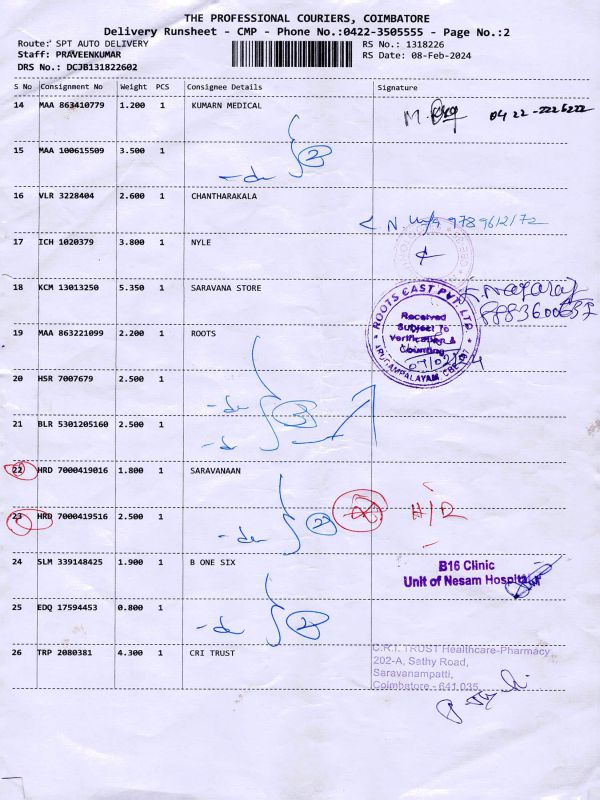 THE PROFESSIONAL COURIERS, COIMBATORE
Delivery Runsheet - CMP - Phone No.:0422-3505555 - Page No.:2
Route: SPT AUTO DELIVERY RS No.: 1318226
Staff: PRAVEENKUMAR RS Date: 08-Feb-2024
DRS No.: DCJB131822602
S No Consignment No Weight PCS Consignee Details Signature
14 MAA 863410779 1.200 1 KUMARN MEDICAL M. 0422-2226222
15 MAA 100615509 3.500 1
-do 2
16 VLR 3228404 2.600 1 CHANTHARAKALA
N. 9789612172
17 ICH 1020379 3.800 1 NYLE
18 KCM 13013250 5.350 1 SARAVANA STORE
K. Nagaraj
ROOTS CAST PVT. LTD.
Received
Subject To
Verification &
Counting
ARUGAMPALAYAM CBE
19 MAA 863221099 2.200 1 ROOTS
20 HSR 7007679 2.500 1
-do 3
21 BLR 5301205160 2.500 1
-do
22 HRD 7000419016 1.800 1 SARAVANAAN
23 HRD 7000419516 2.500 1 H/R
-do 2
24 SLM 339148425 1.900 1 B ONE SIX
B16 Clinic
Unit of Nesam Hospital
25 EDQ 17594453 0.800 1
-do 2
26 TRP 2080381 4.300 1 CRI TRUST
C.R.I. TRUST Healthcare-Pharmacy
202-A, Sathy Road,
Saravanampatti,
Coimbatore - 641 035